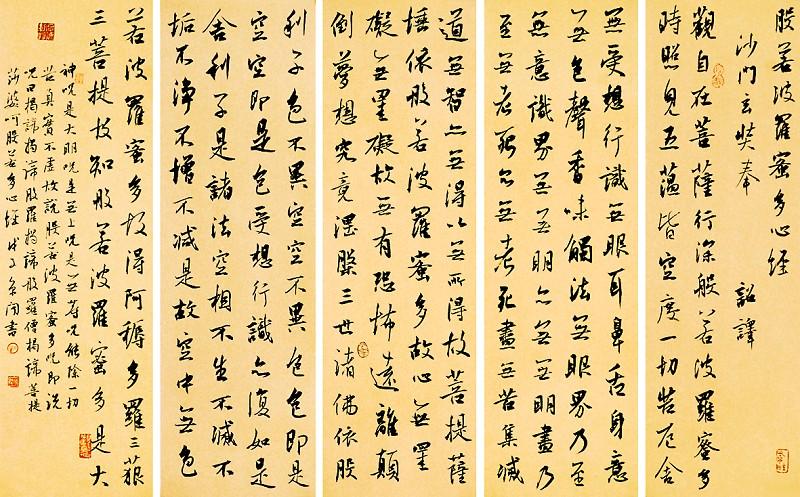 般若波羅蜜多心經
沙門玄奘奉 詔譯
觀自在菩薩行深般若波羅蜜多
時照見五蘊皆空度一切苦厄舍
無受想行識無眼耳鼻舌身意
無色聲香味觸法無眼界乃至
無意識界無無明亦無無明盡乃
至無老死亦無老死盡無苦集滅
道無智亦無得以無所得故菩提薩
埵依般若波羅蜜多故心無罣
礙無罣礙故無有恐怖遠離顛
倒夢想究竟涅槃三世諸佛依般
利子色不異空空不異色色即是
空空即是色受想行識亦復如是
舍利子是諸法空相不生不滅不
垢不淨不增不減是故空中無色
若波羅蜜多故得阿耨多羅三藐
三菩提故知般若波羅蜜多是大
神咒是大明咒是無上咒是無等咒能除一切
苦真實不虛故說般若波羅蜜多咒即說
咒曰揭諦揭諦般羅揭諦般羅僧揭諦菩提
莎婆呵般若多心經 戊子 書